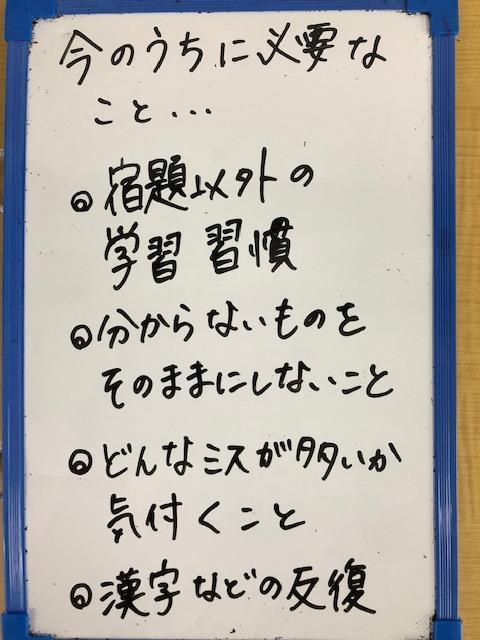 今のうちに必要な
こと...
◎宿題以外の
学習習慣
◎分からないものを
そのままにしないこと
◎どんなミスが多いか
気付くこと
◎漢字などの反復